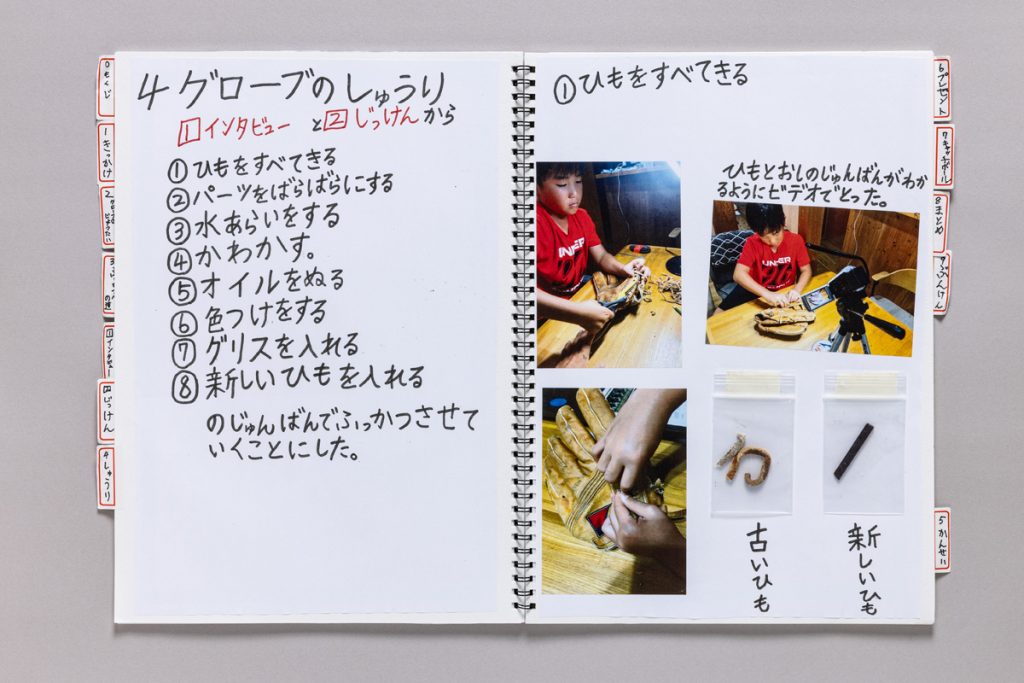 0 もくじ
1 きっかけ
1 インタビュー
2 じっけん
4 しゅうり
4 グローブのしゅうり
1 インタビュー と 2 じっけんから
① ひもをすべてきる
② パーツをばらばらにする
③ 水あらいをする
④ かわかす。
⑤ オイルをぬる
⑥ 色つけをする
⑦ グリスを入れる
⑧ 新しいひもを入れる
のじゅんばんでふっかつさせて
いくことにした。
① ひもをすべてきる
ひもとおしのじゅんばんがわか
るようにビデオでとった。
古いひも
新しいひも
6 プレゼント
7 キャッチボール
8 まとめ
5 かんせい